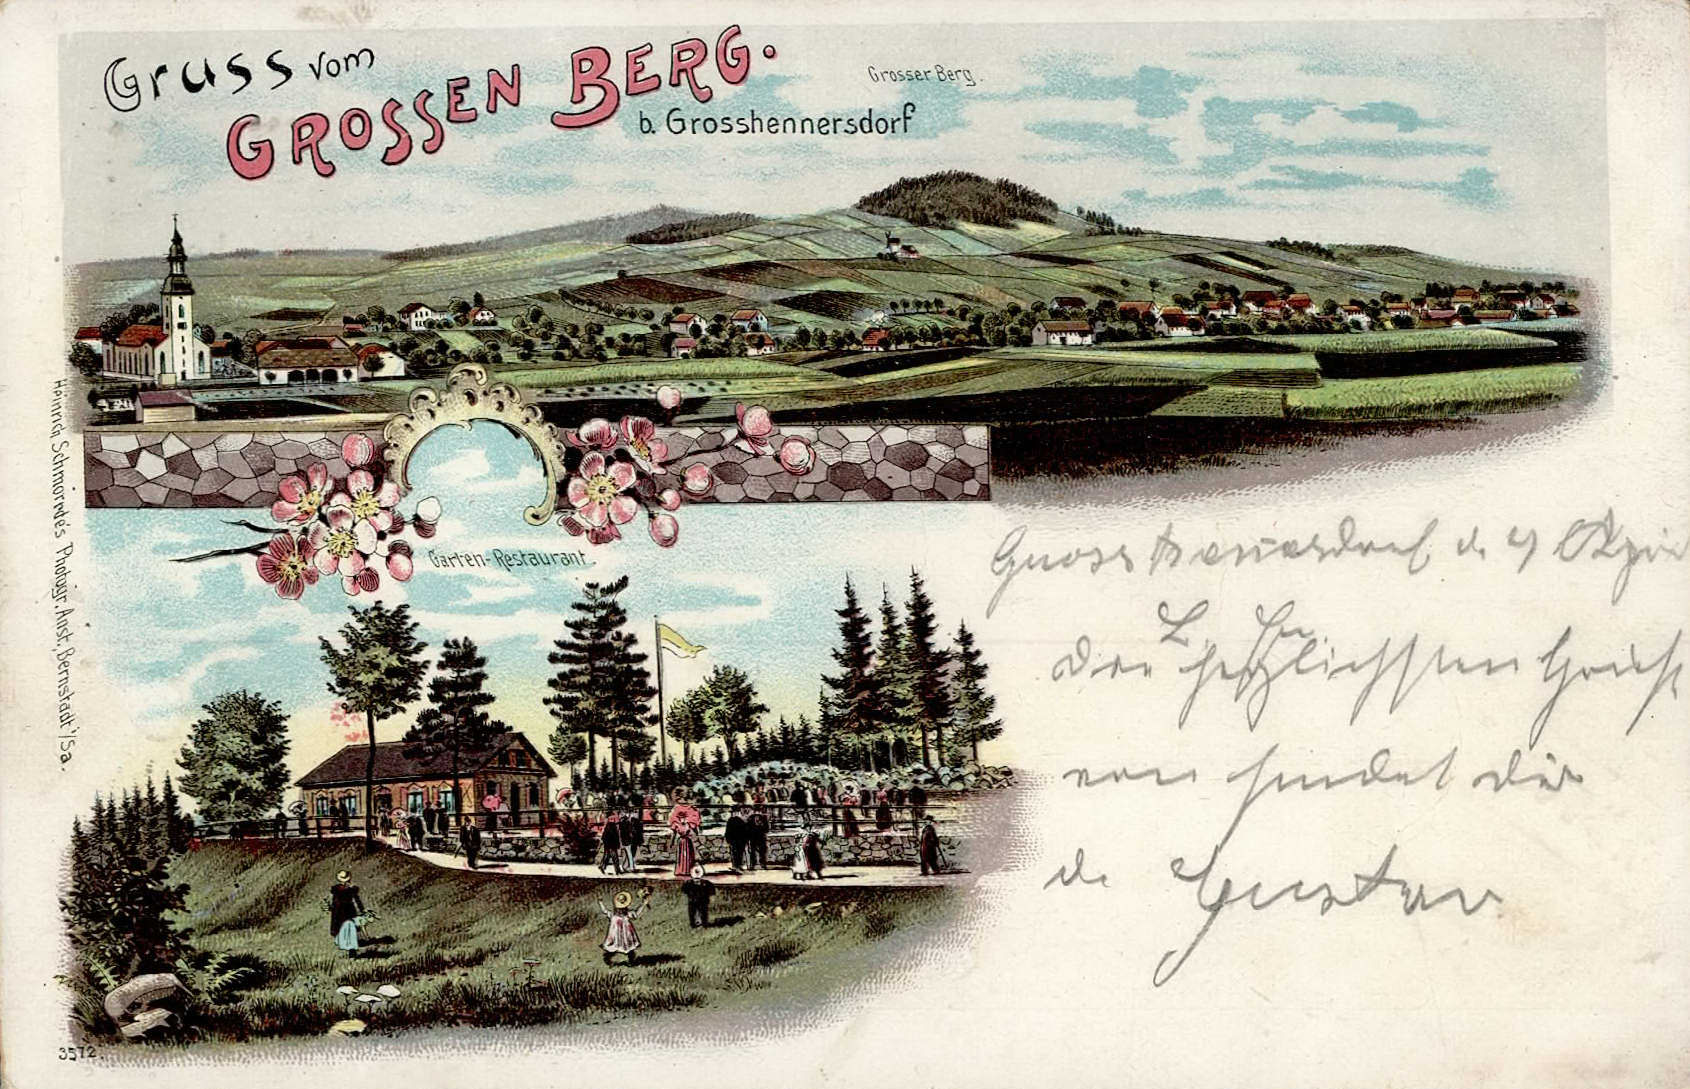 Gruss vom
GROSSEN BERG.
b. Grosshennersdorf
Grosser Berg.
Garten-Restaurant.
Heinrich Schmorrde's Photogr. Anst., Bernstadt i/Sa.
3572.
d. 4 April
Die herzlichsten Grüße
sendet dir
d. Gustav